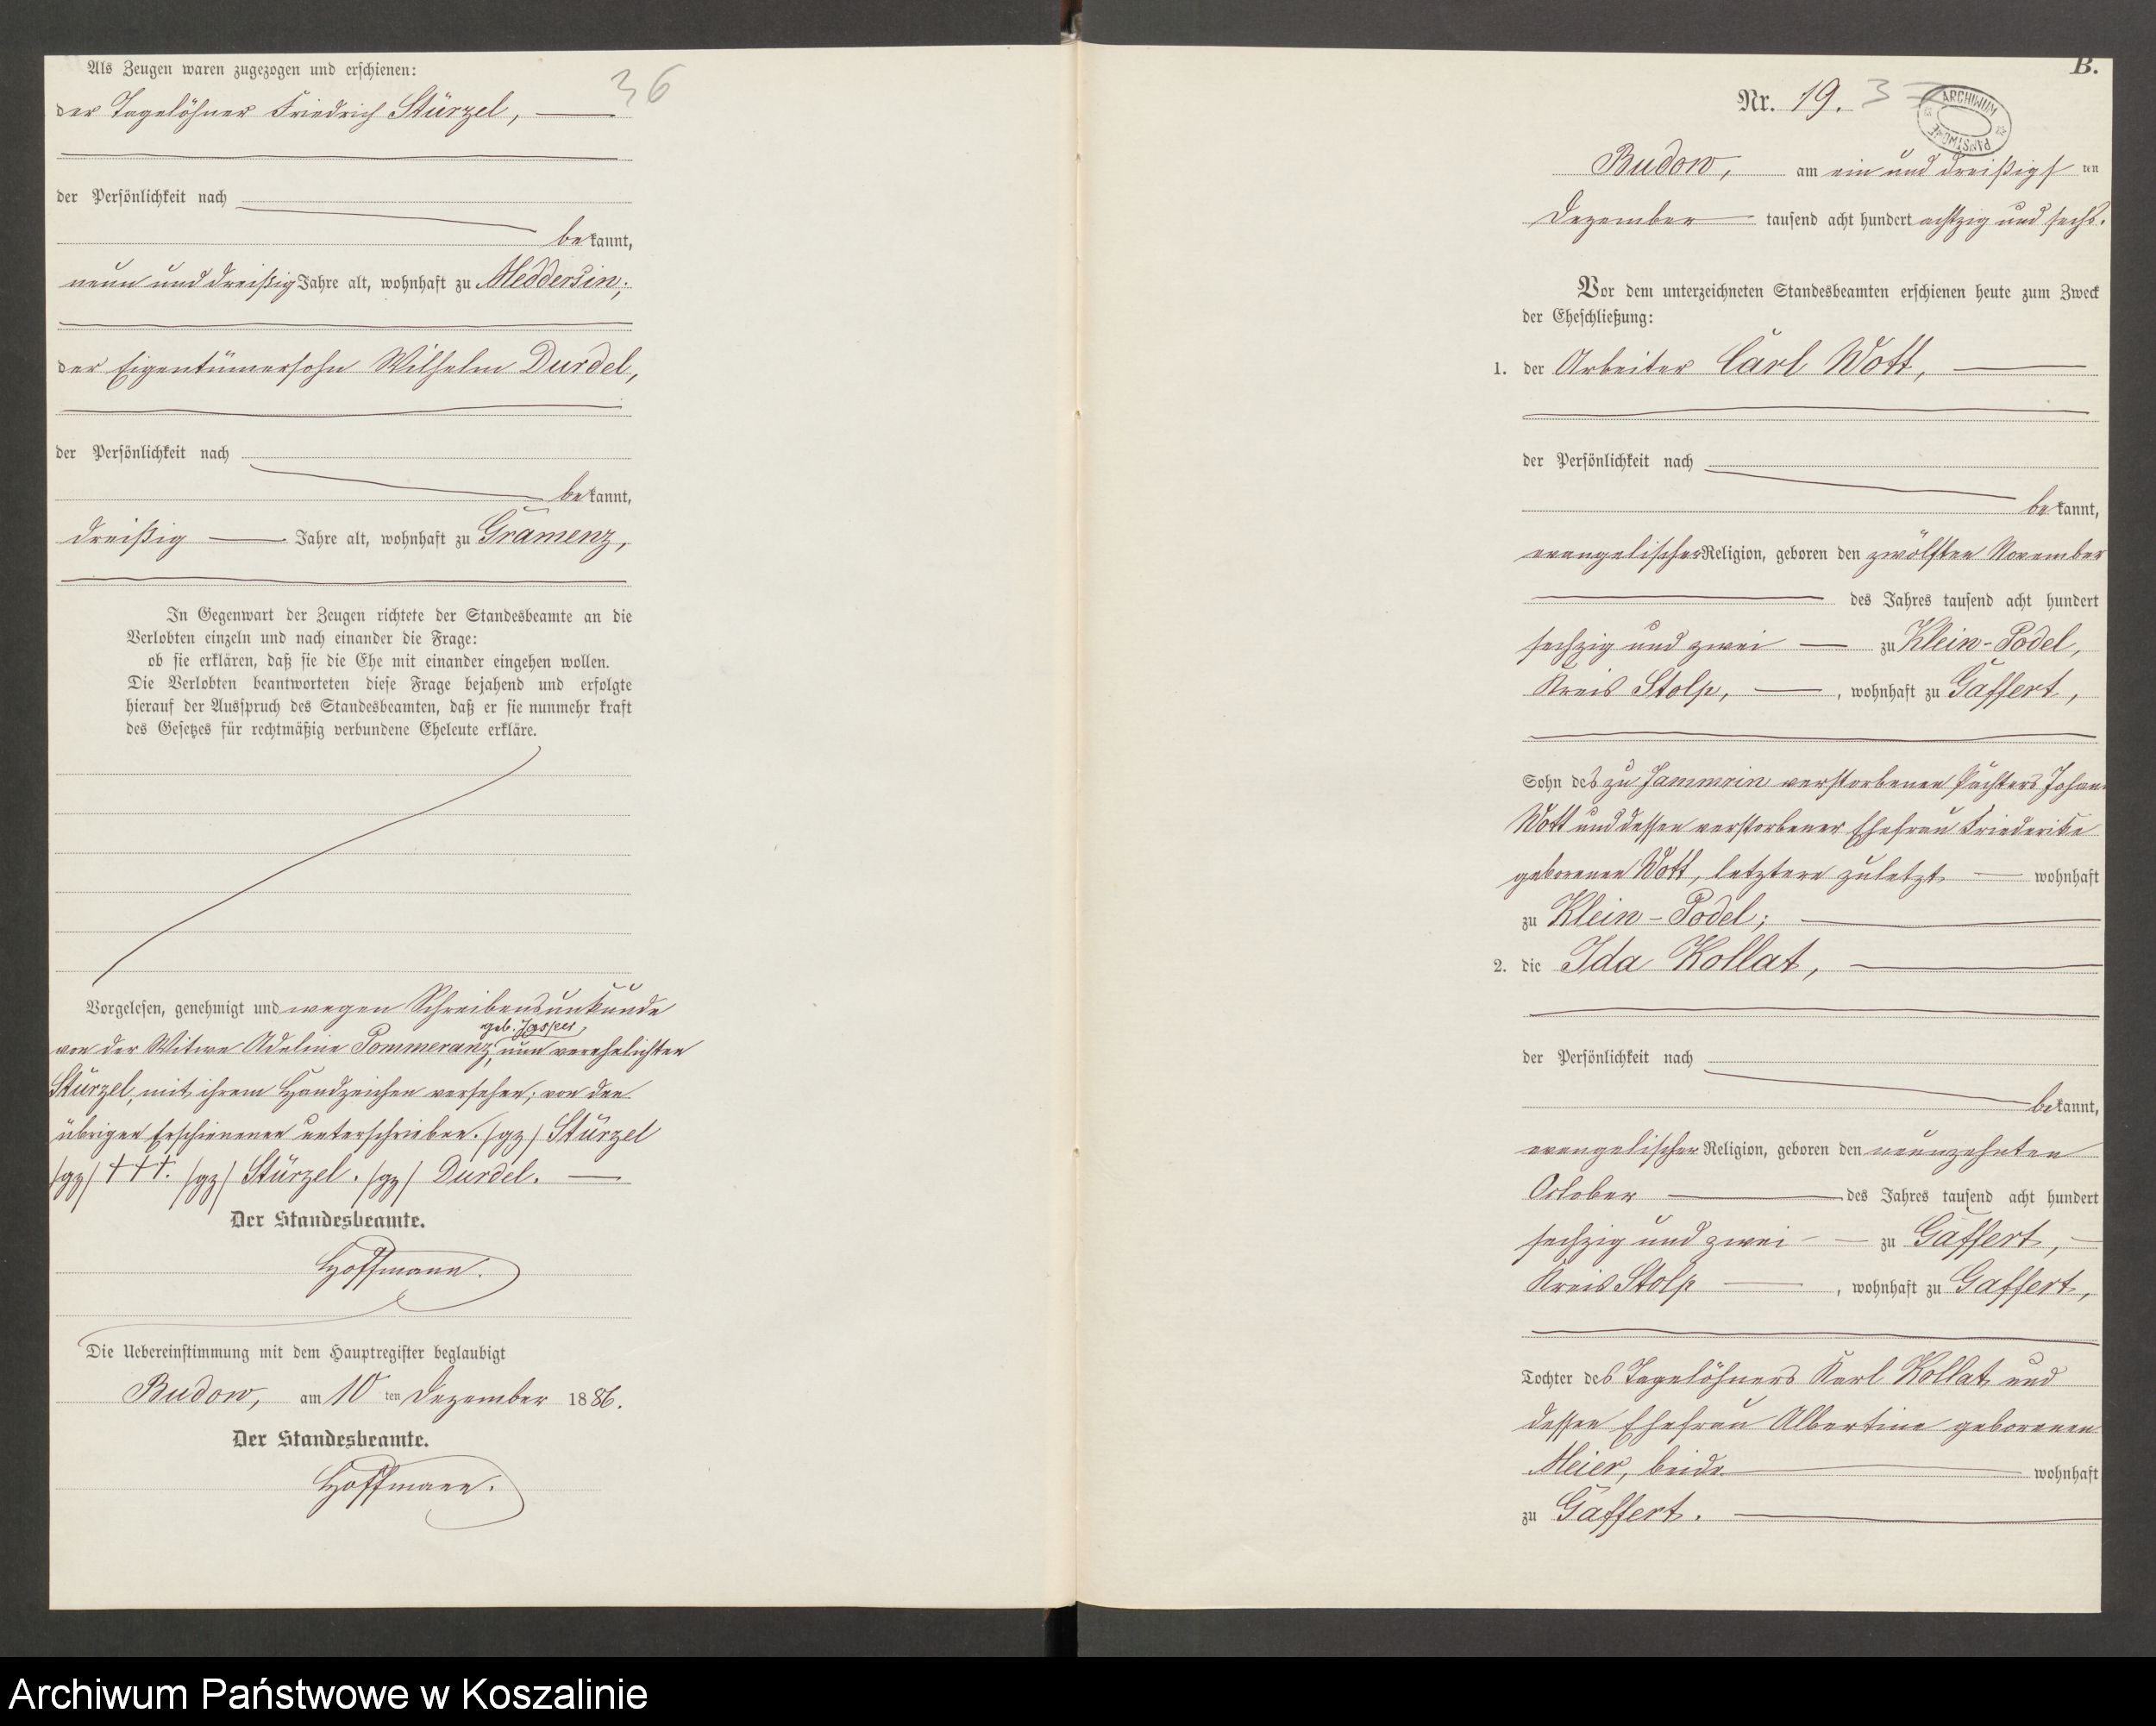 Als Zeugen waren zugezogen und erschienen:
36
der Tagelöhner Friedrich Stürzel,
der Persönlichkeit nach
bekannt,
neun und dreißig Jahre alt, wohnhaft zu Meddersin,
der Eigentümersohn Wilhelm Durdel,
der Persönlichkeit nach
bekannt,
dreißig Jahre alt, wohnhaft zu Gramenz,
In Gegenwart der Zeugen richtete der Standesbeamte an die
Verlobten einzeln und nach einander die Frage:
ob sie erklären, daß sie die Ehe mit einander eingehen wollen.
Die Verlobten beantworteten diese Frage bejahend und erfolgte
hierauf der Ausspruch des Standesbeamten, daß er sie nunmehr kraft
des Gesetzes für rechtmäßig verbundene Eheleute erkläre.
Vorgelesen, genehmigt und wegen Schreibensunkunde
geb. Jasper,
von der Witwe Adeline Pommeranz, nun verehelichten
Stürzel, mit ihrem Handzeichen versehen; von den
übrigen Erschienenen unterschrieben. /gz/ Stürzel
/gz/ +++. /gz/ Stürzel. /gz/ Durdel.
Der Standesbeamte.
Hoffmann.
Die Uebereinstimmung mit dem Hauptregister beglaubigt
Budow, am 10 ten Dezember 1886.
Der Standesbeamte.
Hoffmann.
B.
Nr. 19. 37
ARCHIWUM PAŃSTWOWE
Budow, am ein und dreißigsten
Dezember tausend acht hundert achtzig und sechs.
Vor dem unterzeichneten Standesbeamten erschienen heute zum Zweck
der Eheschließung:
1. der Arbeiter Carl Wott,
der Persönlichkeit nach
bekannt,
evangelischer Religion, geboren den zwölften November
des Jahres tausend acht hundert
sechzig und zwei zu Klein-Podel,
Kreis Stolp, , wohnhaft zu Gaffert,
Sohn des zu Jammrin verstorbenen Pächters Johann
Wott und dessen verstorbener Ehefrau Friederike
geborenen Wott, letztere zuletzt wohnhaft
zu Klein-Podel;
2. die Ida Kollat,
der Persönlichkeit nach
bekannt,
evangelischer Religion, geboren den neunzehnten
October des Jahres tausend acht hundert
sechzig und zwei zu Gaffert,
Kreis Stolp , wohnhaft zu Gaffert,
Tochter des Tagelöhners Karl Kollat und
dessen Ehefrau Albertine geborenen
Meier, beide wohnhaft
zu Gaffert.
Archiwum Państwowe w Koszalinie